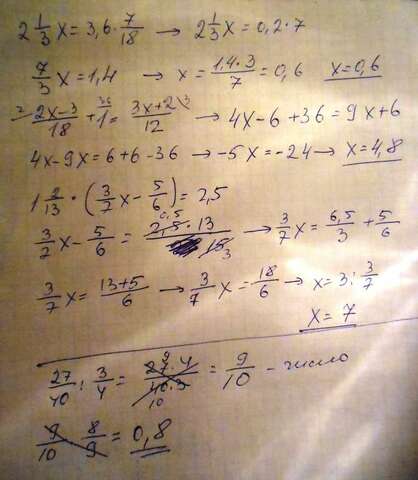 2 1/3 x = 3,6 · 7/18 → 2 1/3 x = 0,2 · 7
7/3 x = 1,4 → x = 1.4·3/7 = 0,6 x = 0,6
2 2x-3/18 + 36 1 = 3x+2 3/12 → 4x - 6 + 36 = 9x + 6
4x - 9x = 6 + 6 - 36 → -5x = -24 → x = 4,8
1 2/13 · (3/7 x - 5/6) = 2,5
3/7 x - 5/6 = 0,5 2,5 · 13/15 3 → 3/7 x = 6,5/3 + 5/6
3/7 x = 13+5/6 → 3/7 x = 18/6 → x = 3 : 3/7
x = 7
27/40 : 3/4 = 9 27·4/40·3 10 = 9/10 - число
9/10 · 8/9 = 0,8